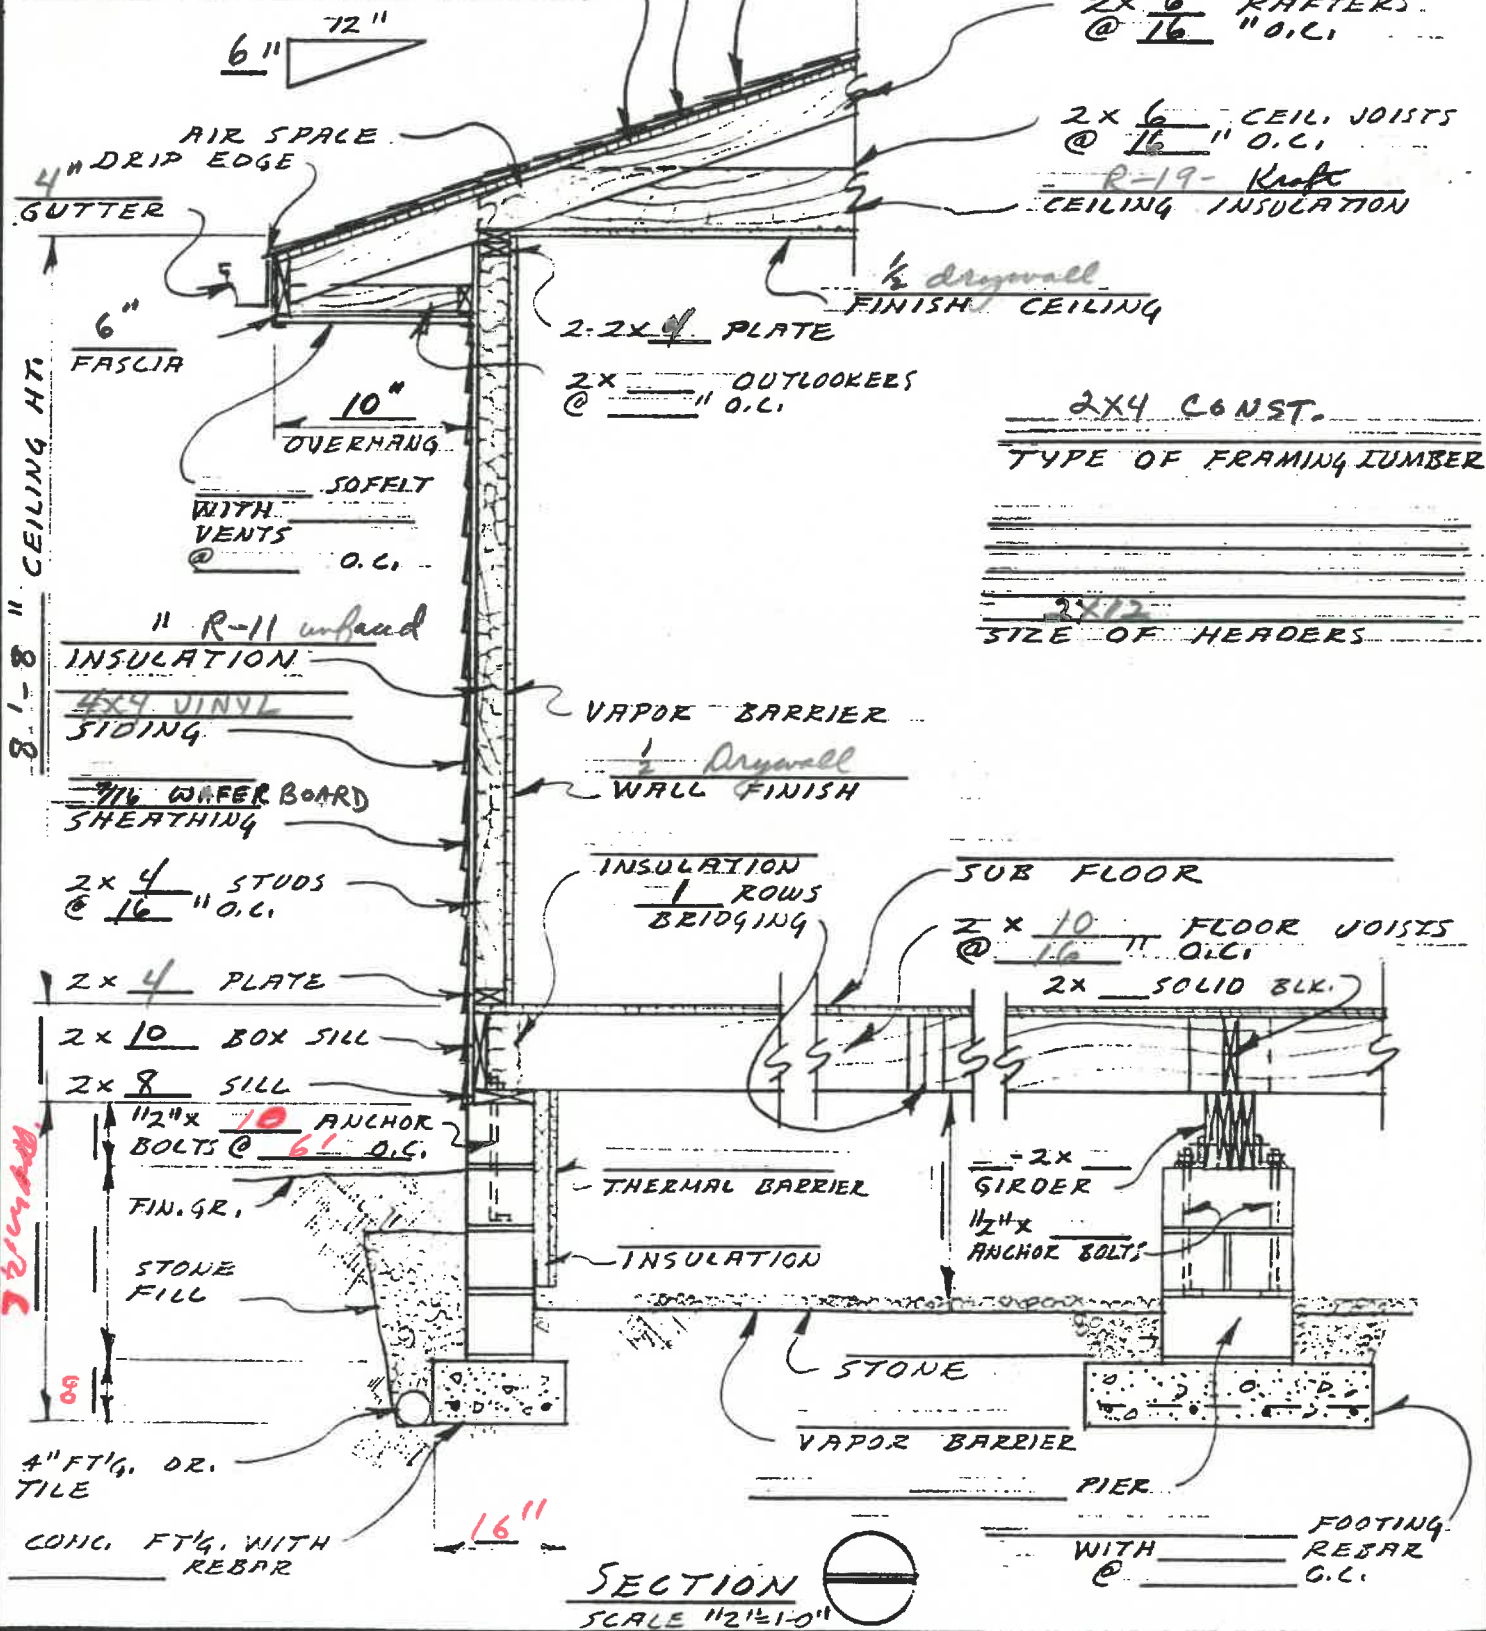 12"
6"
2x 6 RAFTERS
@ 16 "O.C.
AIR SPACE
DRIP EDGE
4"
GUTTER
2x 6 CEIL. JOISTS
@ 16 " O.C.
R-19- Kraft
CEILING INSULATION
1/2 drywall
FINISH CEILING
6"
FASCIA
2-2x 4 PLATE
2x OUTLOOKERS
@ " O.C.
10"
OVERHANG
2X4 CONST.
TYPE OF FRAMING LUMBER
SOFFIT
WITH
VENTS
@ O.C.
8'-8" CEILING HT.
2X12
SIZE OF HEADERS
" R-11 unfaced
INSULATION
4X4 VINYL
SIDING
VAPOR BARRIER
1/2 Drywall
WALL FINISH
7/16 WAFER BOARD
SHEATHING
2x 4 STUDS
@ 16 "O.C.
INSULATION
1 ROWS
BRIDGING
SUB FLOOR
2 x 10 FLOOR JOISTS
@ 16 " O.C.
2x SOLID BLK.
2x 4 PLATE
2x 10 BOX SILL
2x 8 SILL
1/2"x 10 ANCHOR
BOLTS @ 6' O.C.
FIN. GR.
THERMAL BARRIER
-2x
GIRDER
1/2"x
ANCHOR BOLTS
STONE
FILL
INSULATION
8
STONE
VAPOR BARRIER
4" FT'G. DR.
TILE
PIER
16"
CONC. FT'G. WITH
REBAR
FOOTING
WITH REBAR
@ O.C.
SECTION
SCALE 1/2"=1'-0"